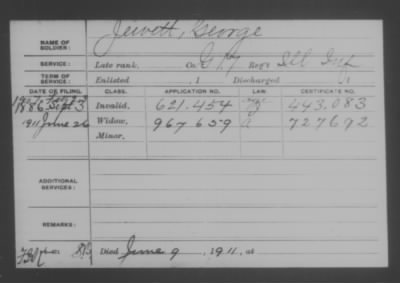 NAME OF SOLDIER: Jewett, George
SERVICE: Late rank, Co. G, Reg't Ill Inf
TERM OF SERVICE: Enlisted , 1 Discharged , 1
DATE OF FILING. CLASS. APPLICATION NO. LAW. CERTIFICATE NO.
1886 Invalid, 621.454 443.083
1911 June 26 Widow, 967 659 727692
Minor,
ADDITIONAL SERVICES:
REMARKS:
Died June 9, 1911, at